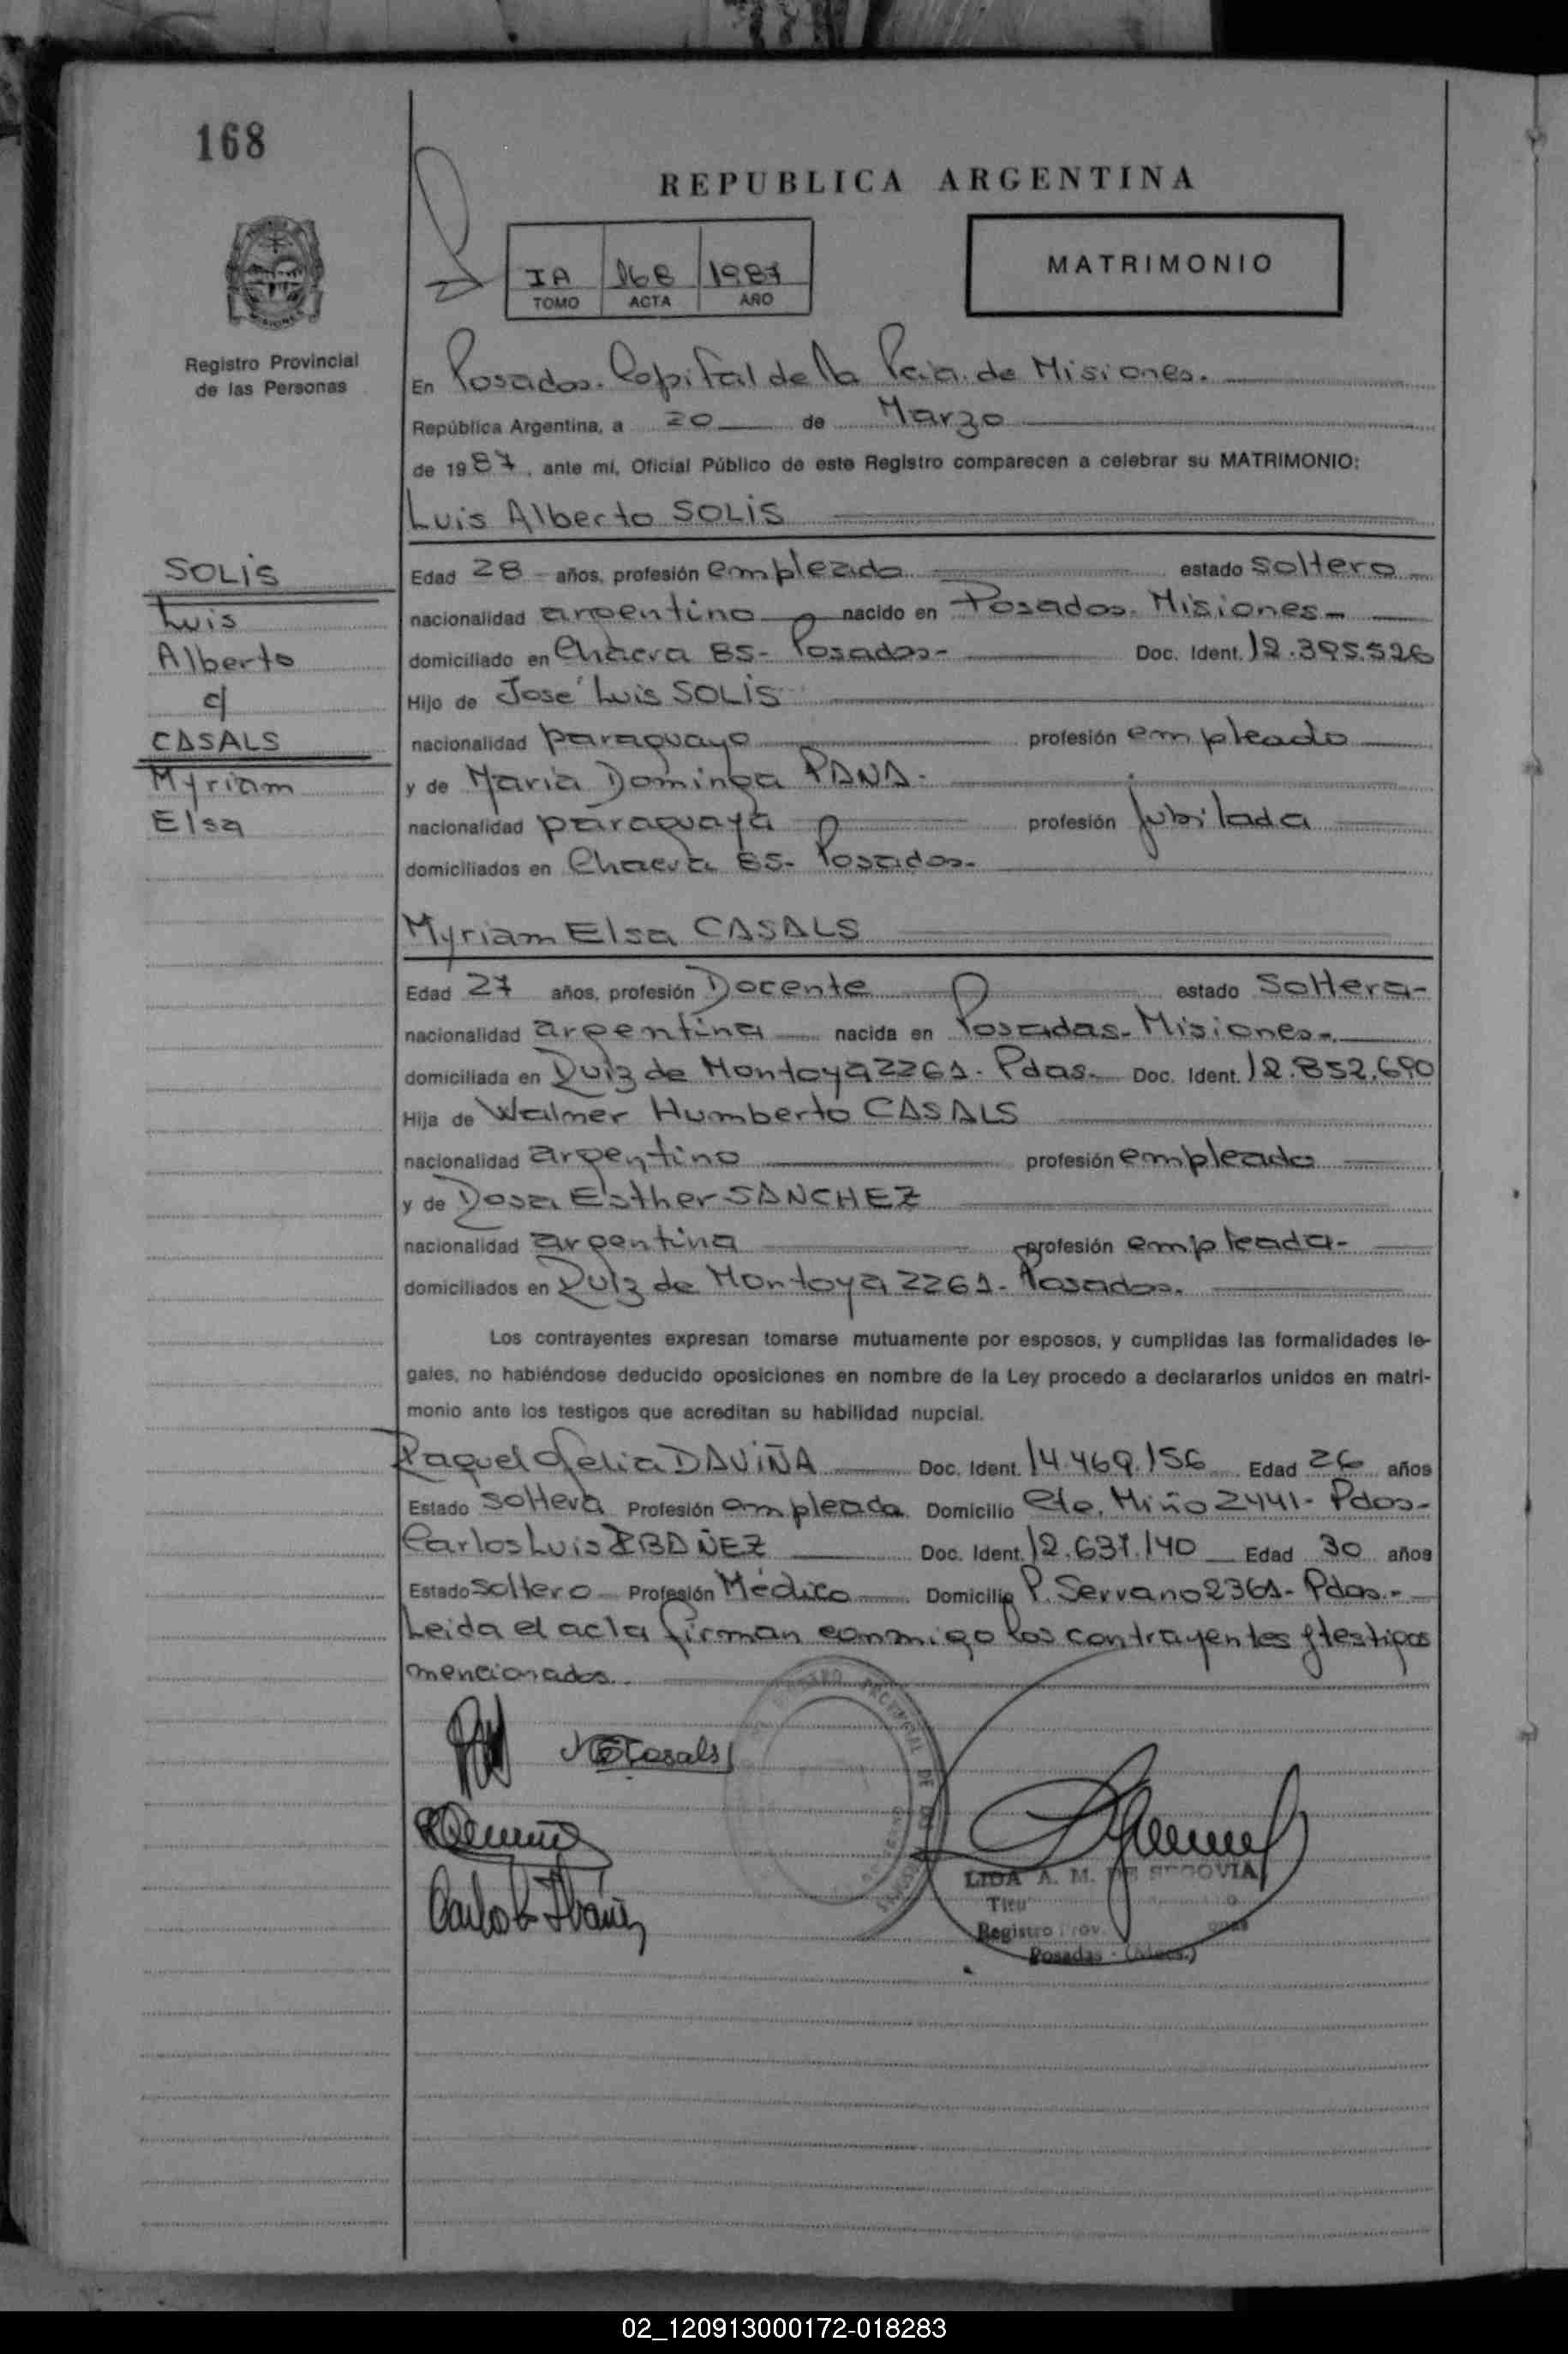 168
REPUBLICA ARGENTINA
MATRIMONIO
IA 168 1987
TOMO ACTA AÑO
Registro Provincial
de las Personas
En Posadas. Capital de la Pcia. de Misiones.
República Argentina, a 20 de Marzo
de 1987, ante mí, Oficial Público de este Registro comparecen a celebrar su MATRIMONIO:
Luis Alberto SOLIS
SOLIS
Luis
Alberto
c/
CASALS
Myriam
Elsa
Edad 28 años, profesión empleado estado soltero
nacionalidad argentino nacido en Posadas. Misiones
domiciliado en Chacra 85- Posadas- Doc. Ident. 12.395.526
Hijo de José Luis SOLIS
nacionalidad paraguayo profesión empleado
y de María Dominga PANA.
nacionalidad paraguaya profesión jubilada
domiciliados en Chacra 85- Posadas-
Myriam Elsa CASALS
Edad 27 años, profesión Docente estado soltera-
nacionalidad argentina nacida en Posadas- Misiones-
domiciliada en Ruiz de Montoya 2261- Pdas. Doc. Ident. 12.852.690
Hija de Walmer Humberto CASALS
nacionalidad argentino profesión empleado
y de Rosa Esther SANCHEZ
nacionalidad argentina profesión empleada-
domiciliados en Ruiz de Montoya 2261- Posadas.
Los contrayentes expresan tomarse mutuamente por esposos, y cumplidas las formalidades le-
gales, no habiéndose deducido oposiciones en nombre de la Ley procedo a declararlos unidos en matri-
monio ante los testigos que acreditan su habilidad nupcial.
Raquel Ofelia DAVIÑA Doc. Ident. 14.469.156 Edad 26 años
Estado soltera Profesión empleada Domicilio Cte. Miño 2441- Pdas-
Carlos Luis IBAÑEZ Doc. Ident. 12.637.140 Edad 30 años
Estado soltero Profesión Médico Domicilio P. Serrano 2361- Pdas.-
Leida el acta firman conmigo los contrayentes y testigos
mencionados.
MECasals
Carlos L Ibáñez
LIDA A. M. DE SEGOVIA
Registro Prov.
Posadas - (Mnes.)
02_120913000172-018283